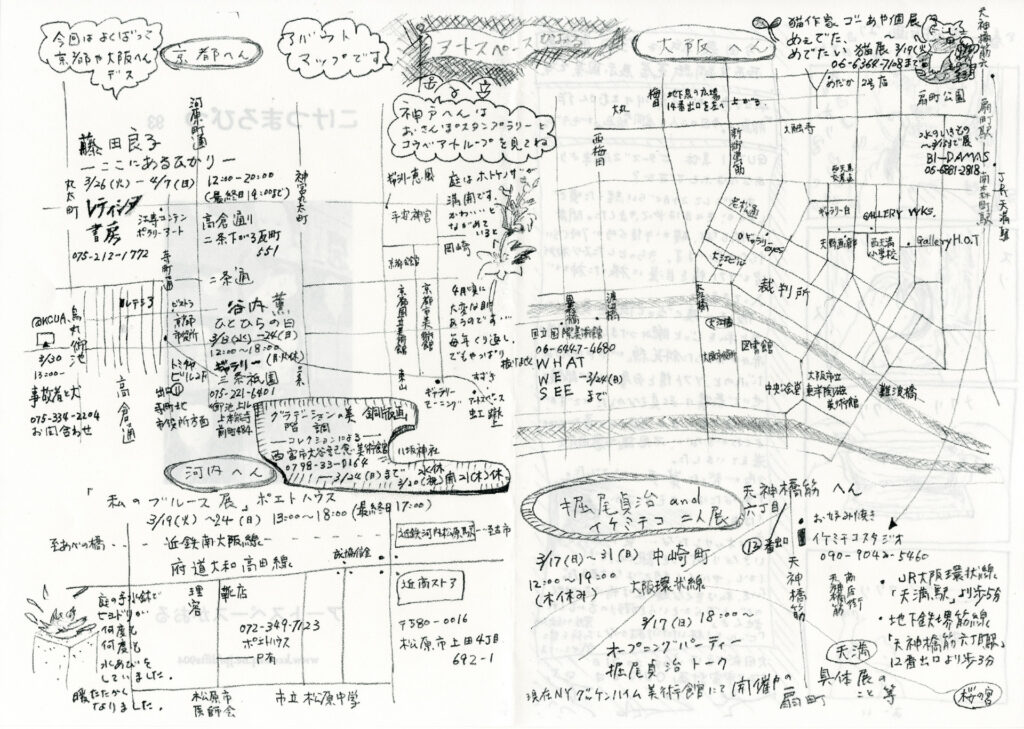 今回はよくばって
京都や大阪へん
デス
京都へん
アバウト
マップです
アートスペース
大阪へん
猫作家 ゴあや個展
めぇでた、～
めでたい猫展 3/19(火)
06-6364-7108まで
天神橋筋六
あだか 2号店
扇町公園
扇町駅
南森町駅
JR天満駅
神戸へんは
おさんぽスタンプラリーと
コウベアートループを見てね
梅田
地下鉄の広場
14番出口を左へ上がる。
丸大
西梅田
新御堂筋
太融寺
水のいきもの
～3/15まで展
BI-DAMAS
05-6881-2818
河原町通
藤田良子
—ここにあるひかり—
3/26(火)～4/7(日) 12:00～20:00
(最終日19:00まで)
丸太町
レティシア
書房
075-212-1772
高倉通り
二条下がる瓦町
551
神宮丸太町
寺町通
二条通
平安神宮
庭はホトケノザ
満開です。
かわいいと
ながめて
いると
岡崎
京都会館
老松通
Oギャラリーeyes
大江ビル
ギャラリー白
GALLERY wks.
天野画廊
西天満
小学校
Gallery H.O.T
裁判所
@KCUA
烏丸御池
3/30
13:00～
事故者と犬
075-334-2204
お問合わせ
高倉通
京都市
市役所
市役所方面
谷内薫
ひとひらの日
3/8(火)～24(日)
12:00～18:00
(月)休
ギャラリー
三条祇園
075-221-6401
御池上ル
上本能寺
前町484
三条
京都国立近代美術館
京都市美術館
4月頃に
大変な時
あるのです…
毎年くり返し
でもやっぱり
東山
ギャラリー
モーニング
アートスペース
虹
八坂神社
肥後橋
渡辺橋
国立国際美術館
06-6447-4680
WHAT
WE
SEE
～3/24(日)
まで
大江橋
図書館
中央公会堂
大阪市立
東洋陶磁
美術館
難波橋
グラデーションの美 銅版画
階調
—コレクションによる—
西宮市大谷記念美術館
0798-33-0164
～3/24(日)まで 水休
3/20(祝)開 21(木)休。
河内へん
「私のブルース展」ポエトハウス
3/19(火)～24(日) 13:00～18:00 (最終日17:00)
至あべの橋
近鉄南大阪線
近鉄河内松原駅
至古市
府道大和高田線
成協信金
近商ストア
理容
靴店
072-349-7123
ポエトハウス
P有
〒580-0016
松原市上田4丁目
692-1
庭の手水鉢で
ヒヨドリが
何度も
何度も
水あびを
していました。
暖たたかく
なりました。
松原市
医師会
市立松原中学
堀尾貞治 and
イケミチコ 二人展
3/17(日)～31(日) 中崎町
12:00～19:00
(木休み)
大阪環状線
3/17(日) 18:00～
オープニングパーティー
堀尾貞治 トーク
現在NYグッゲンハイム美術館にて開催中の
具体展の
こと等
天神橋筋へん
六丁目
12番出口
お好み焼き
イケミチコスタジオ
090-9042-5460
天神橋筋
天神橋筋商店街
・JR大阪環状線
「天満駅」より歩5分
・地下鉄堺筋線
「天神橋筋六丁目駅」
12番出口より歩3分
天満
扇町
桜の宮